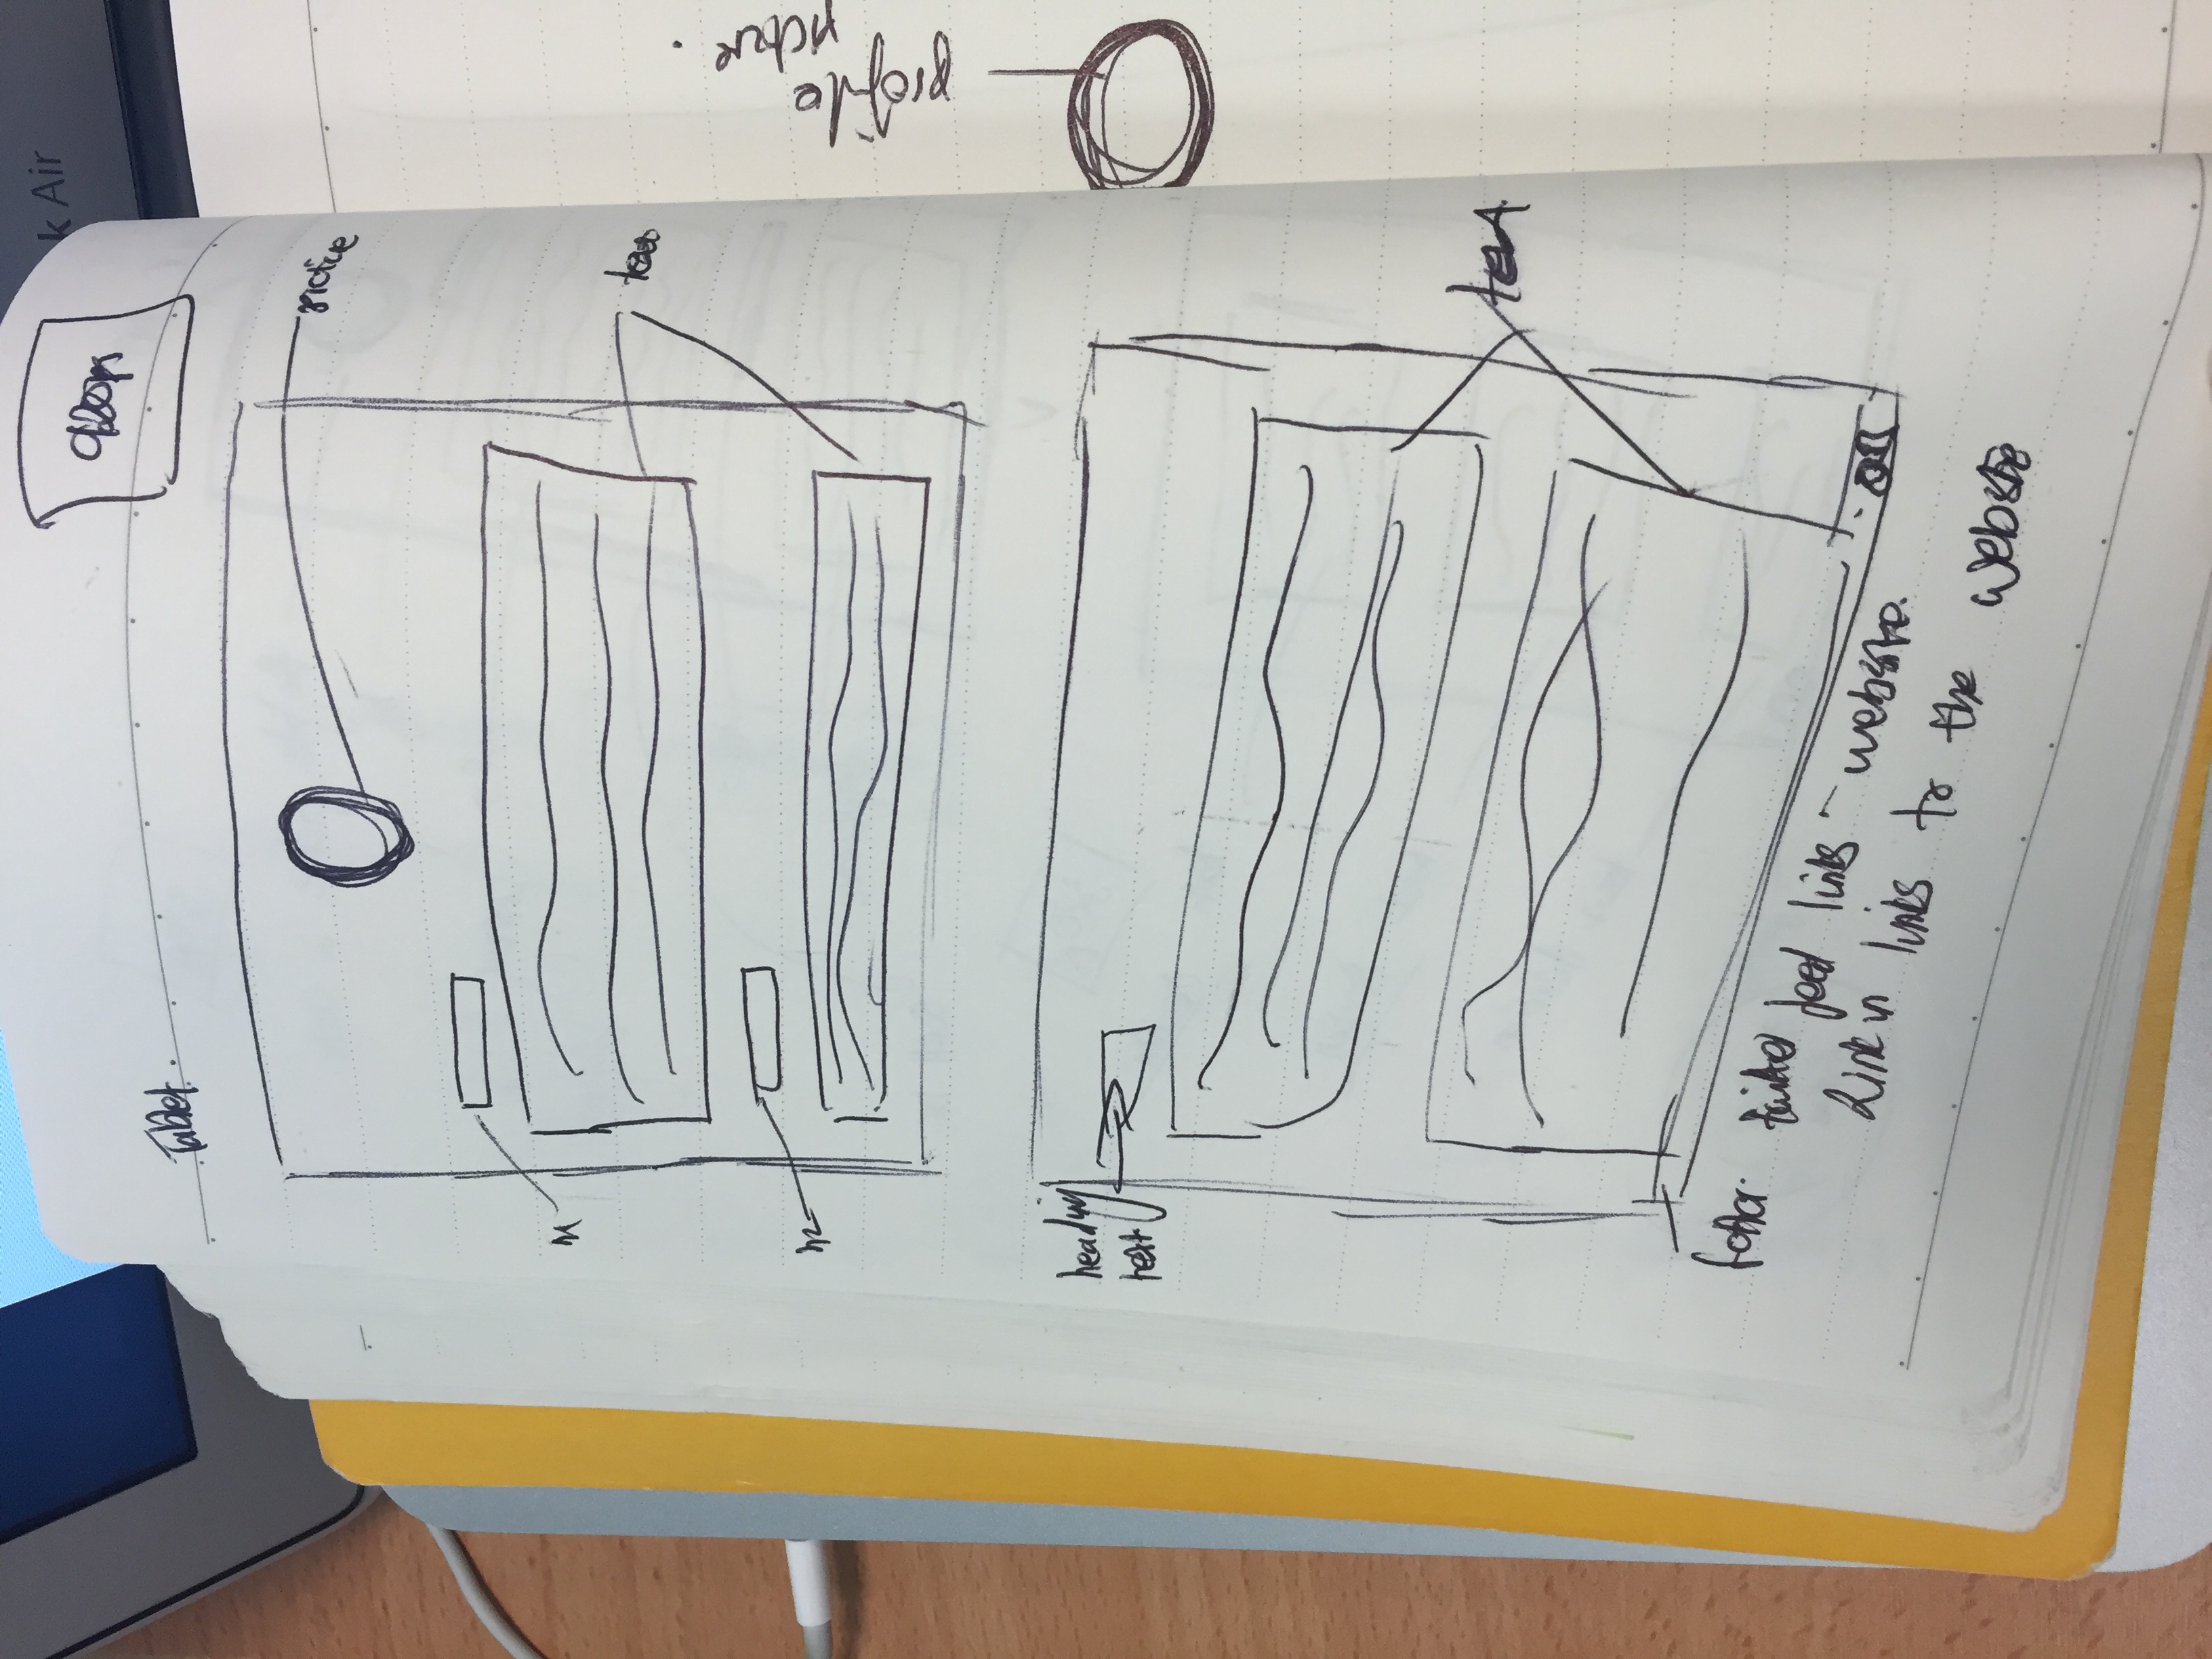 k Air
Tablet.
picture
h1
text
h2
heading
text
text
footer.
twitter feed links - website.
Linkin links to the website
profile
picture.